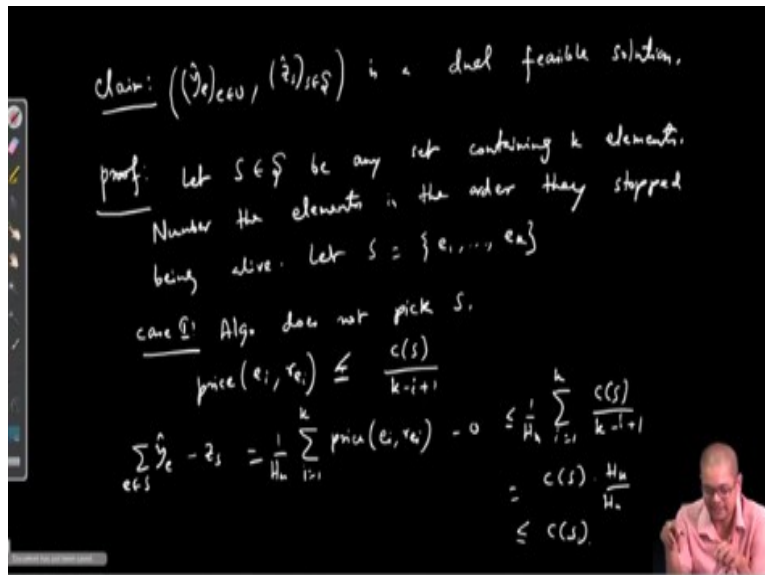 Claim: ((ŷ_e)_{e∈U}, (ẑ_s)_{s∈S}) is a dual feasible solution.
proof: Let S ∈ S be any set containing k elements.
Number the elements in the order they stopped
being alive. Let S = {e_1, ..., e_k}
case I: Algo does not pick S.
price(e_i, r_{e_i}) ≤ c(S)/(k-i+1)
∑_{e∈S} ŷ_e - z_s = 1/H_n ∑_{i=1}^{k} price(e_i, r_{e_i}) - 0 ≤ 1/H_n ∑_{i=1}^{k} c(S)/(k-i+1)
= c(S) · H_k/H_n
≤ c(S).